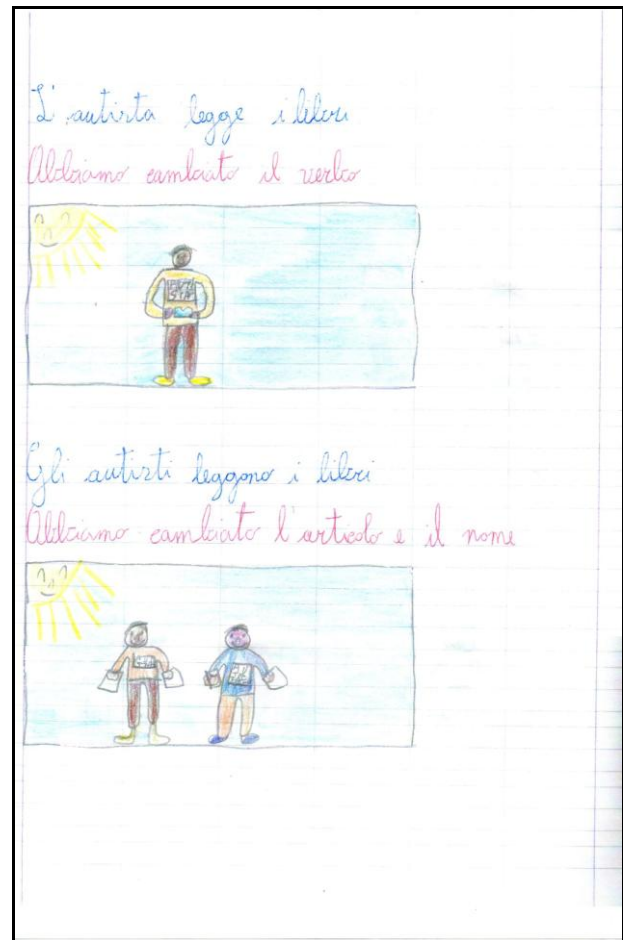 L'autista legge i libri
Abbiamo cambiato il verbo
Gli autisti leggono i libri
Abbiamo cambiato l'articolo e il nome